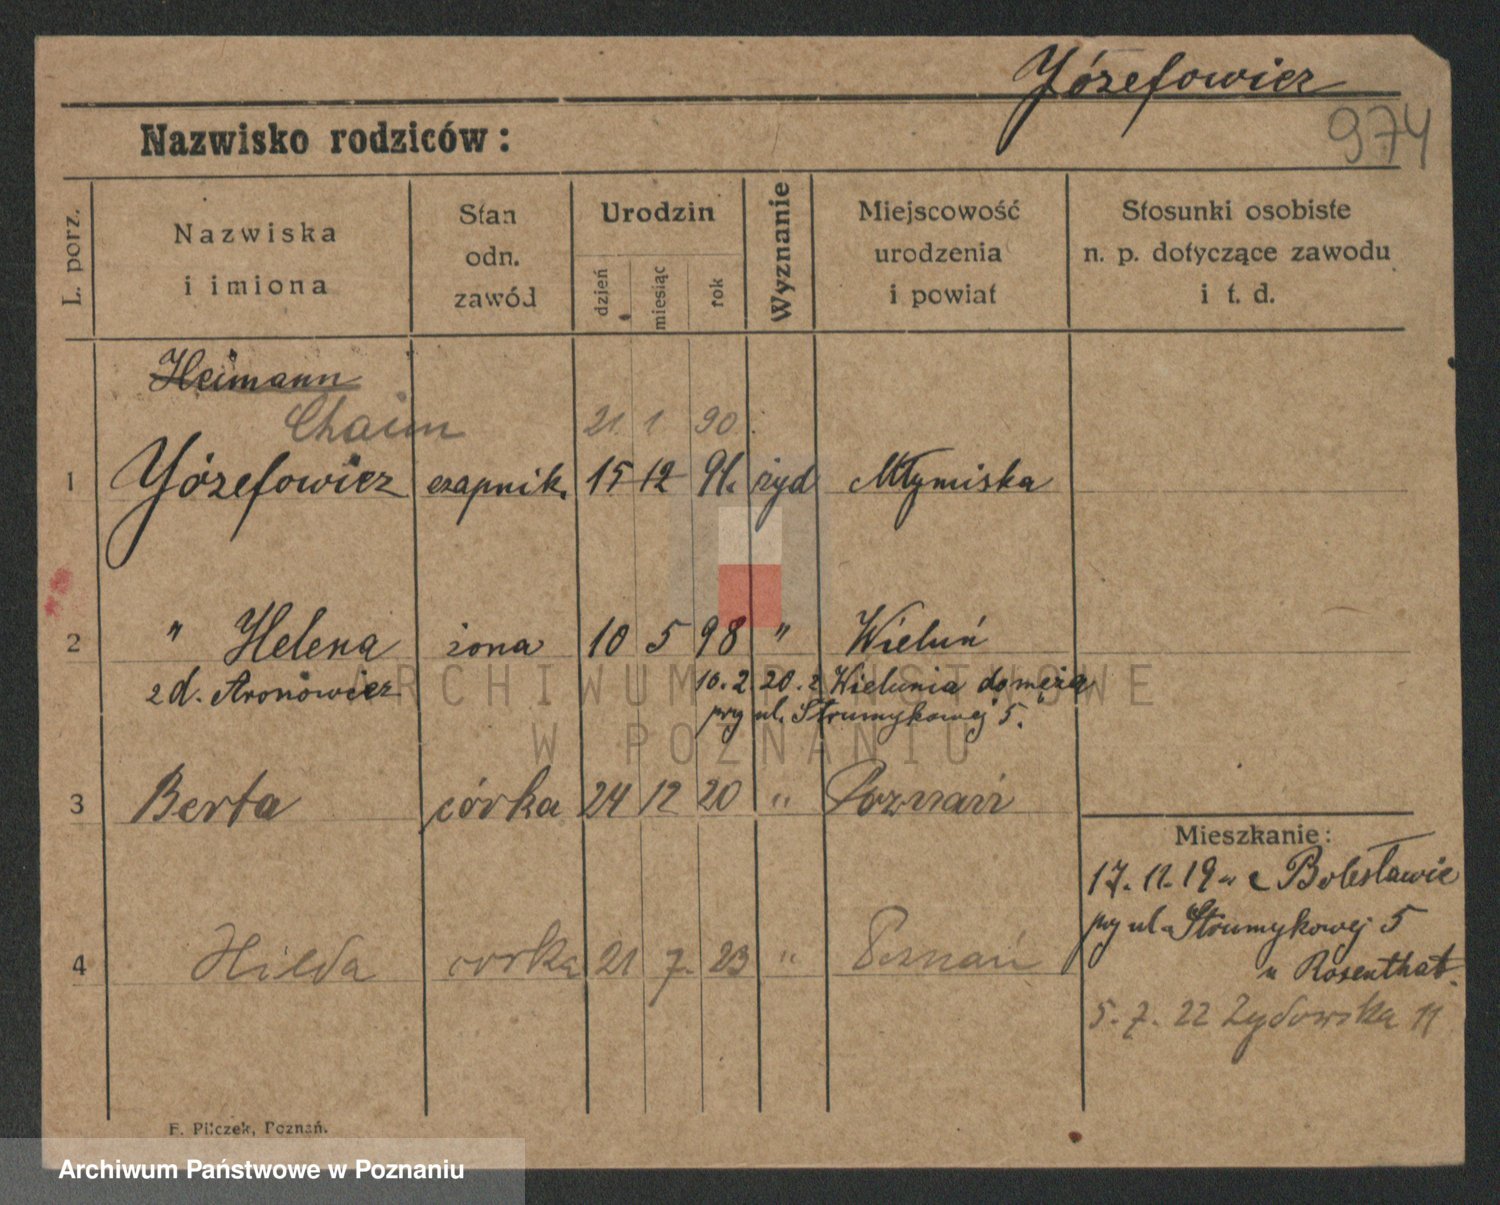 Józefowicz
974
Nazwisko rodziców:
L. porz.
Nazwiska
i imiona
Stan
odn.
zawód
Urodzin
dzień
miesiąc
rok
Wyznanie
Miejscowość
urodzenia
i powiat
Stosunki osobiste
n. p. dotyczące zawodu
i t. d.
Heimann
Chaim 21. 1 90.
1 Józefowicz czapnik. 15 12 91. żyd Młyniska
2 " Helena żona 10 5 98 " Wieluń
z d. Aronowicz 10.2 20. z Wielunia do męża
przy ul. Strumykowej 5.
3 Berta córka 24 12 20 " Poznań
Mieszkanie:
17. 11. 19 z Bolesławic
przy ul. Strumykowej 5
4 Hilda córka 21 7. 23 " Poznań
u Rosenthal.
5. 7. 22 Żydowska 11
F. Pilczek, Poznań.
ARCHIWUM PAŃSTWOWE
W POZNANIU
Archiwum Państwowe w Poznaniu